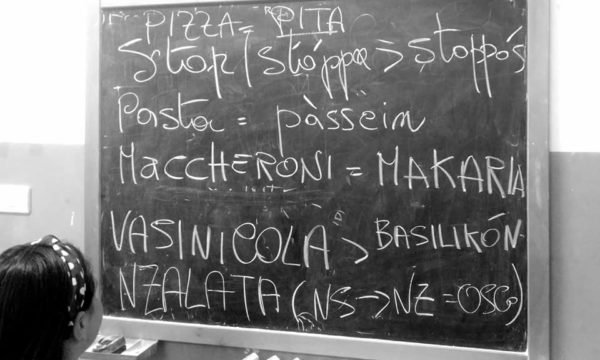 PIZZA = PITA
Stop / stóppa => stoppós
Pasta = pàssein
MACCHERONI = MAKARIA
VASINICOLA > BASILIKÓN
NZALATA (NS → NZ = OSCO)